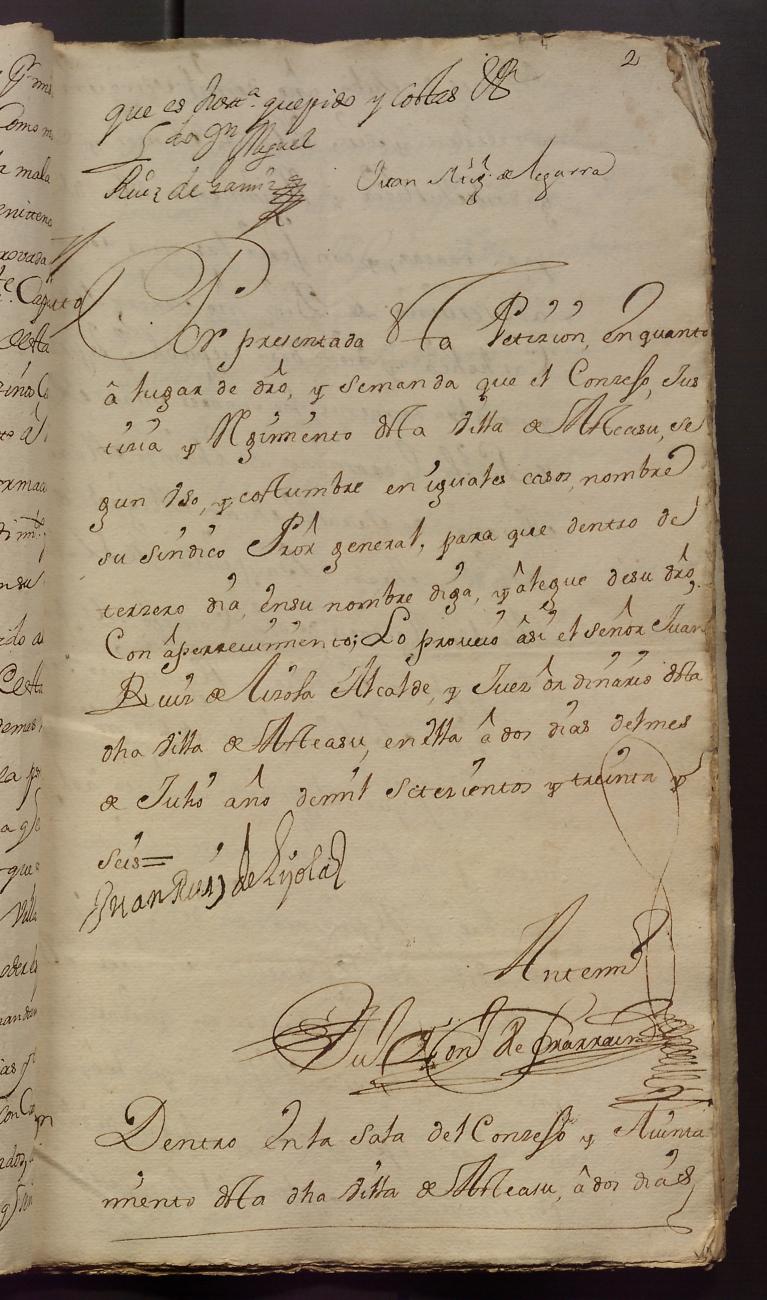 2
que es Justᵃ. que pido y Costas &ᵃ
Miguel
Ruiz de Juan Ruiz de
Por presentada esta Peticion, en quanto
â lugar de dro, y se manda que el Conzejo, Jus
ticia y Regimiento desta Villa de Alleasu, se
gun Vso, y costumbre en iguales casos, nombre
su sindico Pror general, para que dentro de
terzero dia, en su nombre diga, y âlegue de su dro,
Con âperzevimiento; Lo proveió âsi el señor Juan
Ruiz de Alcalde, y Juez ôrdinario desta
dha Villa de Alleasu, en ella â dos dias del mes
de Julio año de mil Setezientos y treinta y
seis=
Juan Ruiz de
Antemi
de
Dentro en la Sala del Conzejo y Aiunta
miento desta dha Villa de Alleasu, â dos dias